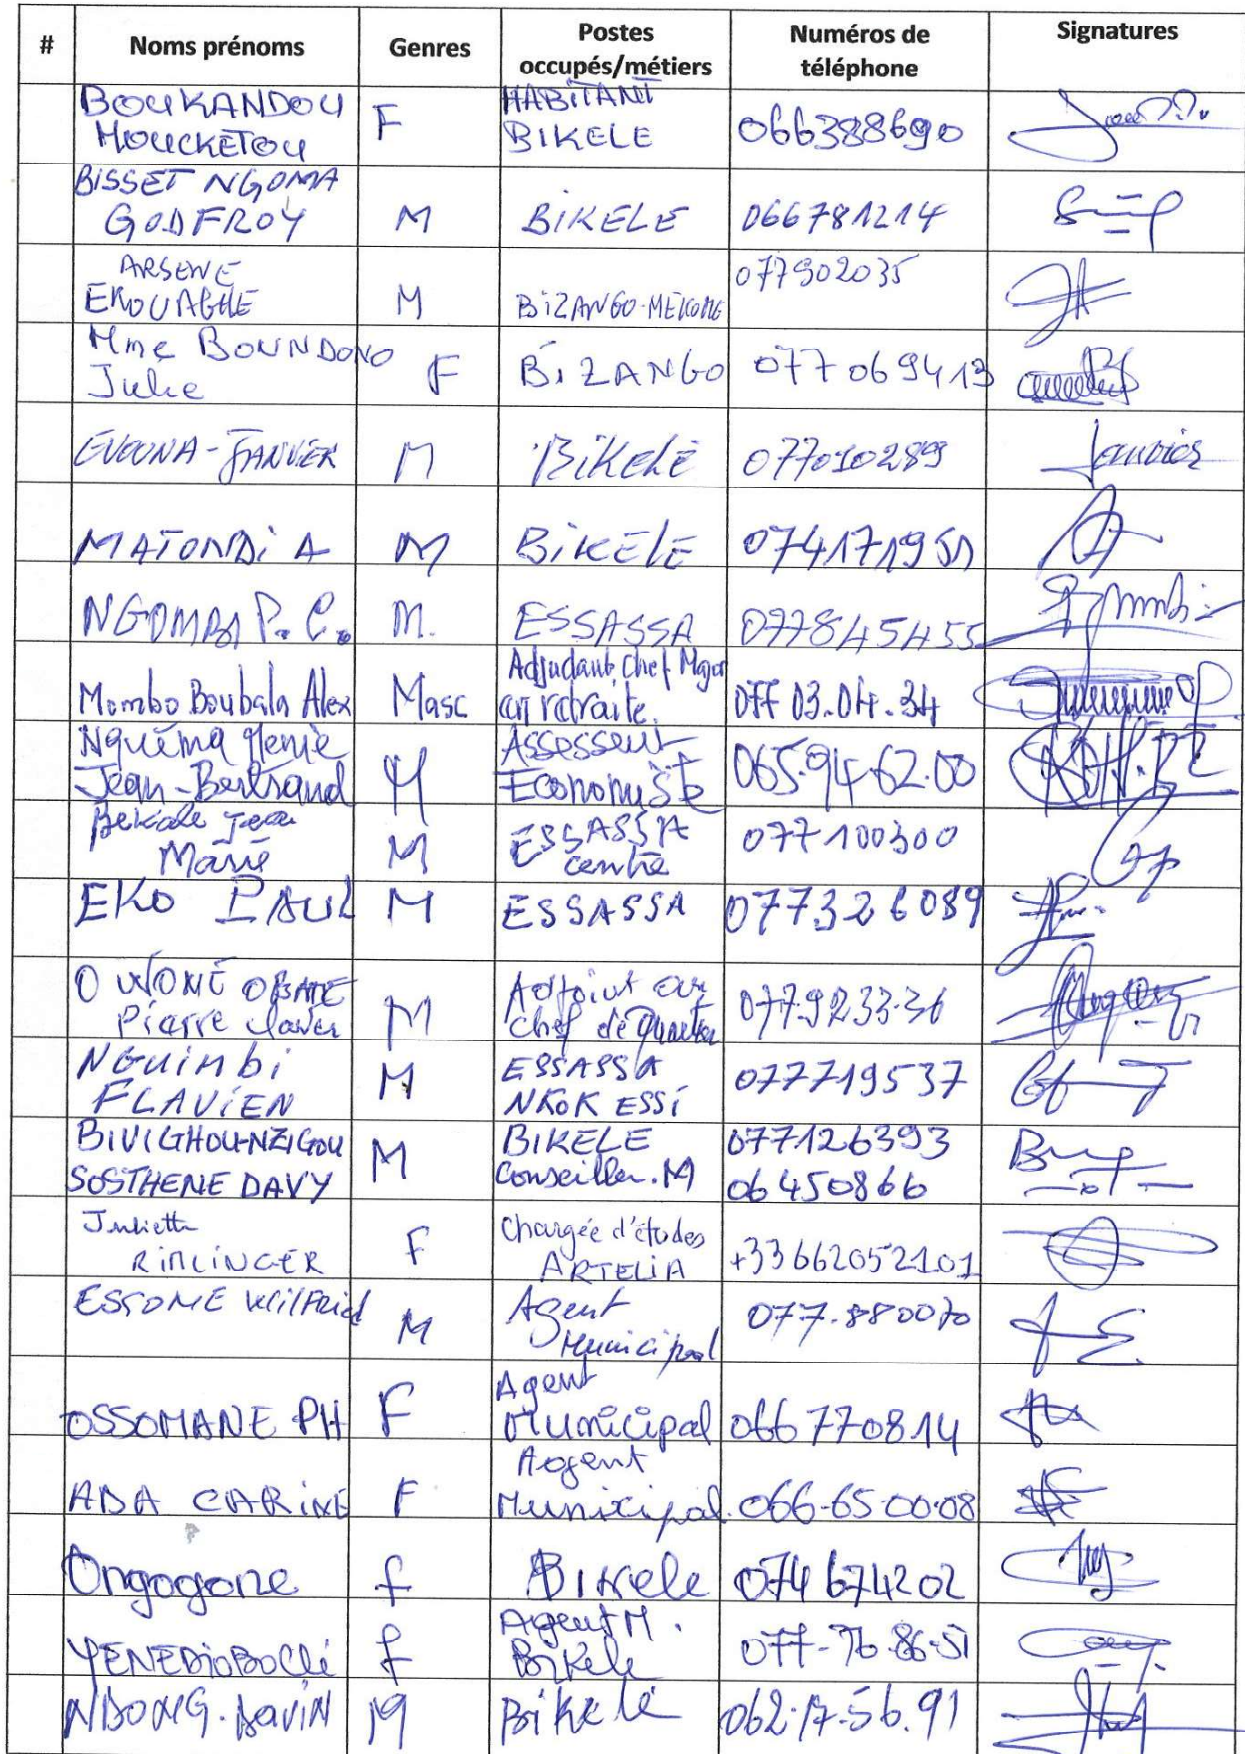 # Noms prénoms Genres Postes occupés/métiers Numéros de téléphone Signatures
BOUKANDOU MOUCKETOU F HABITANT BIKELE 066388690
BISSET NGOMA GODFROY M BIKELE 066781214
ARSENE EKOUAGHE M BIZANGO-MEKONG 077902035
Mme BOUNDONO Julie F BIZANGO 077069413
EVOUNA-JANVIER M BIKELE 077010289 Janvier
MATONDI A M BIKELE 074171951
NGOMBI P. C. M. ESSASSA 077845455
Mombo Boubala Alex Masc Adjudant Chef Major en retraite 077 03.04.34
Nguéma Jean-Bertrand M Assesseur Economiste 065.94.62.00
Bekale Jean Marie M ESSASSA centre 077100300
EKO PAUL M ESSASSA 077326089
OWONE Pierre Claver M Adjoint au chef de quartier 077.92.33.36
NGUIMBI FLAVIEN M ESSASSA NKOK ESSI 077719537
BIVIGHOU-NZIGOU SOSTHENE DAVY M BIKELE Conseiller.M 077126393 06450866
Juliette RIMLINGER F Chargée d'études ARTELIA +33662052101
ESSOME Wilfried M Agent Municipal 077.880070
OSSOMANE PH F Agent Municipal 066770814
ADA CARINE F Agent Municipal. 066-65 00.08
Ongogone f Bikele 074674202
f Agent M. Bikele 077-76-86-51
NDONG. DAVIN M Bikele 062.17.56.91